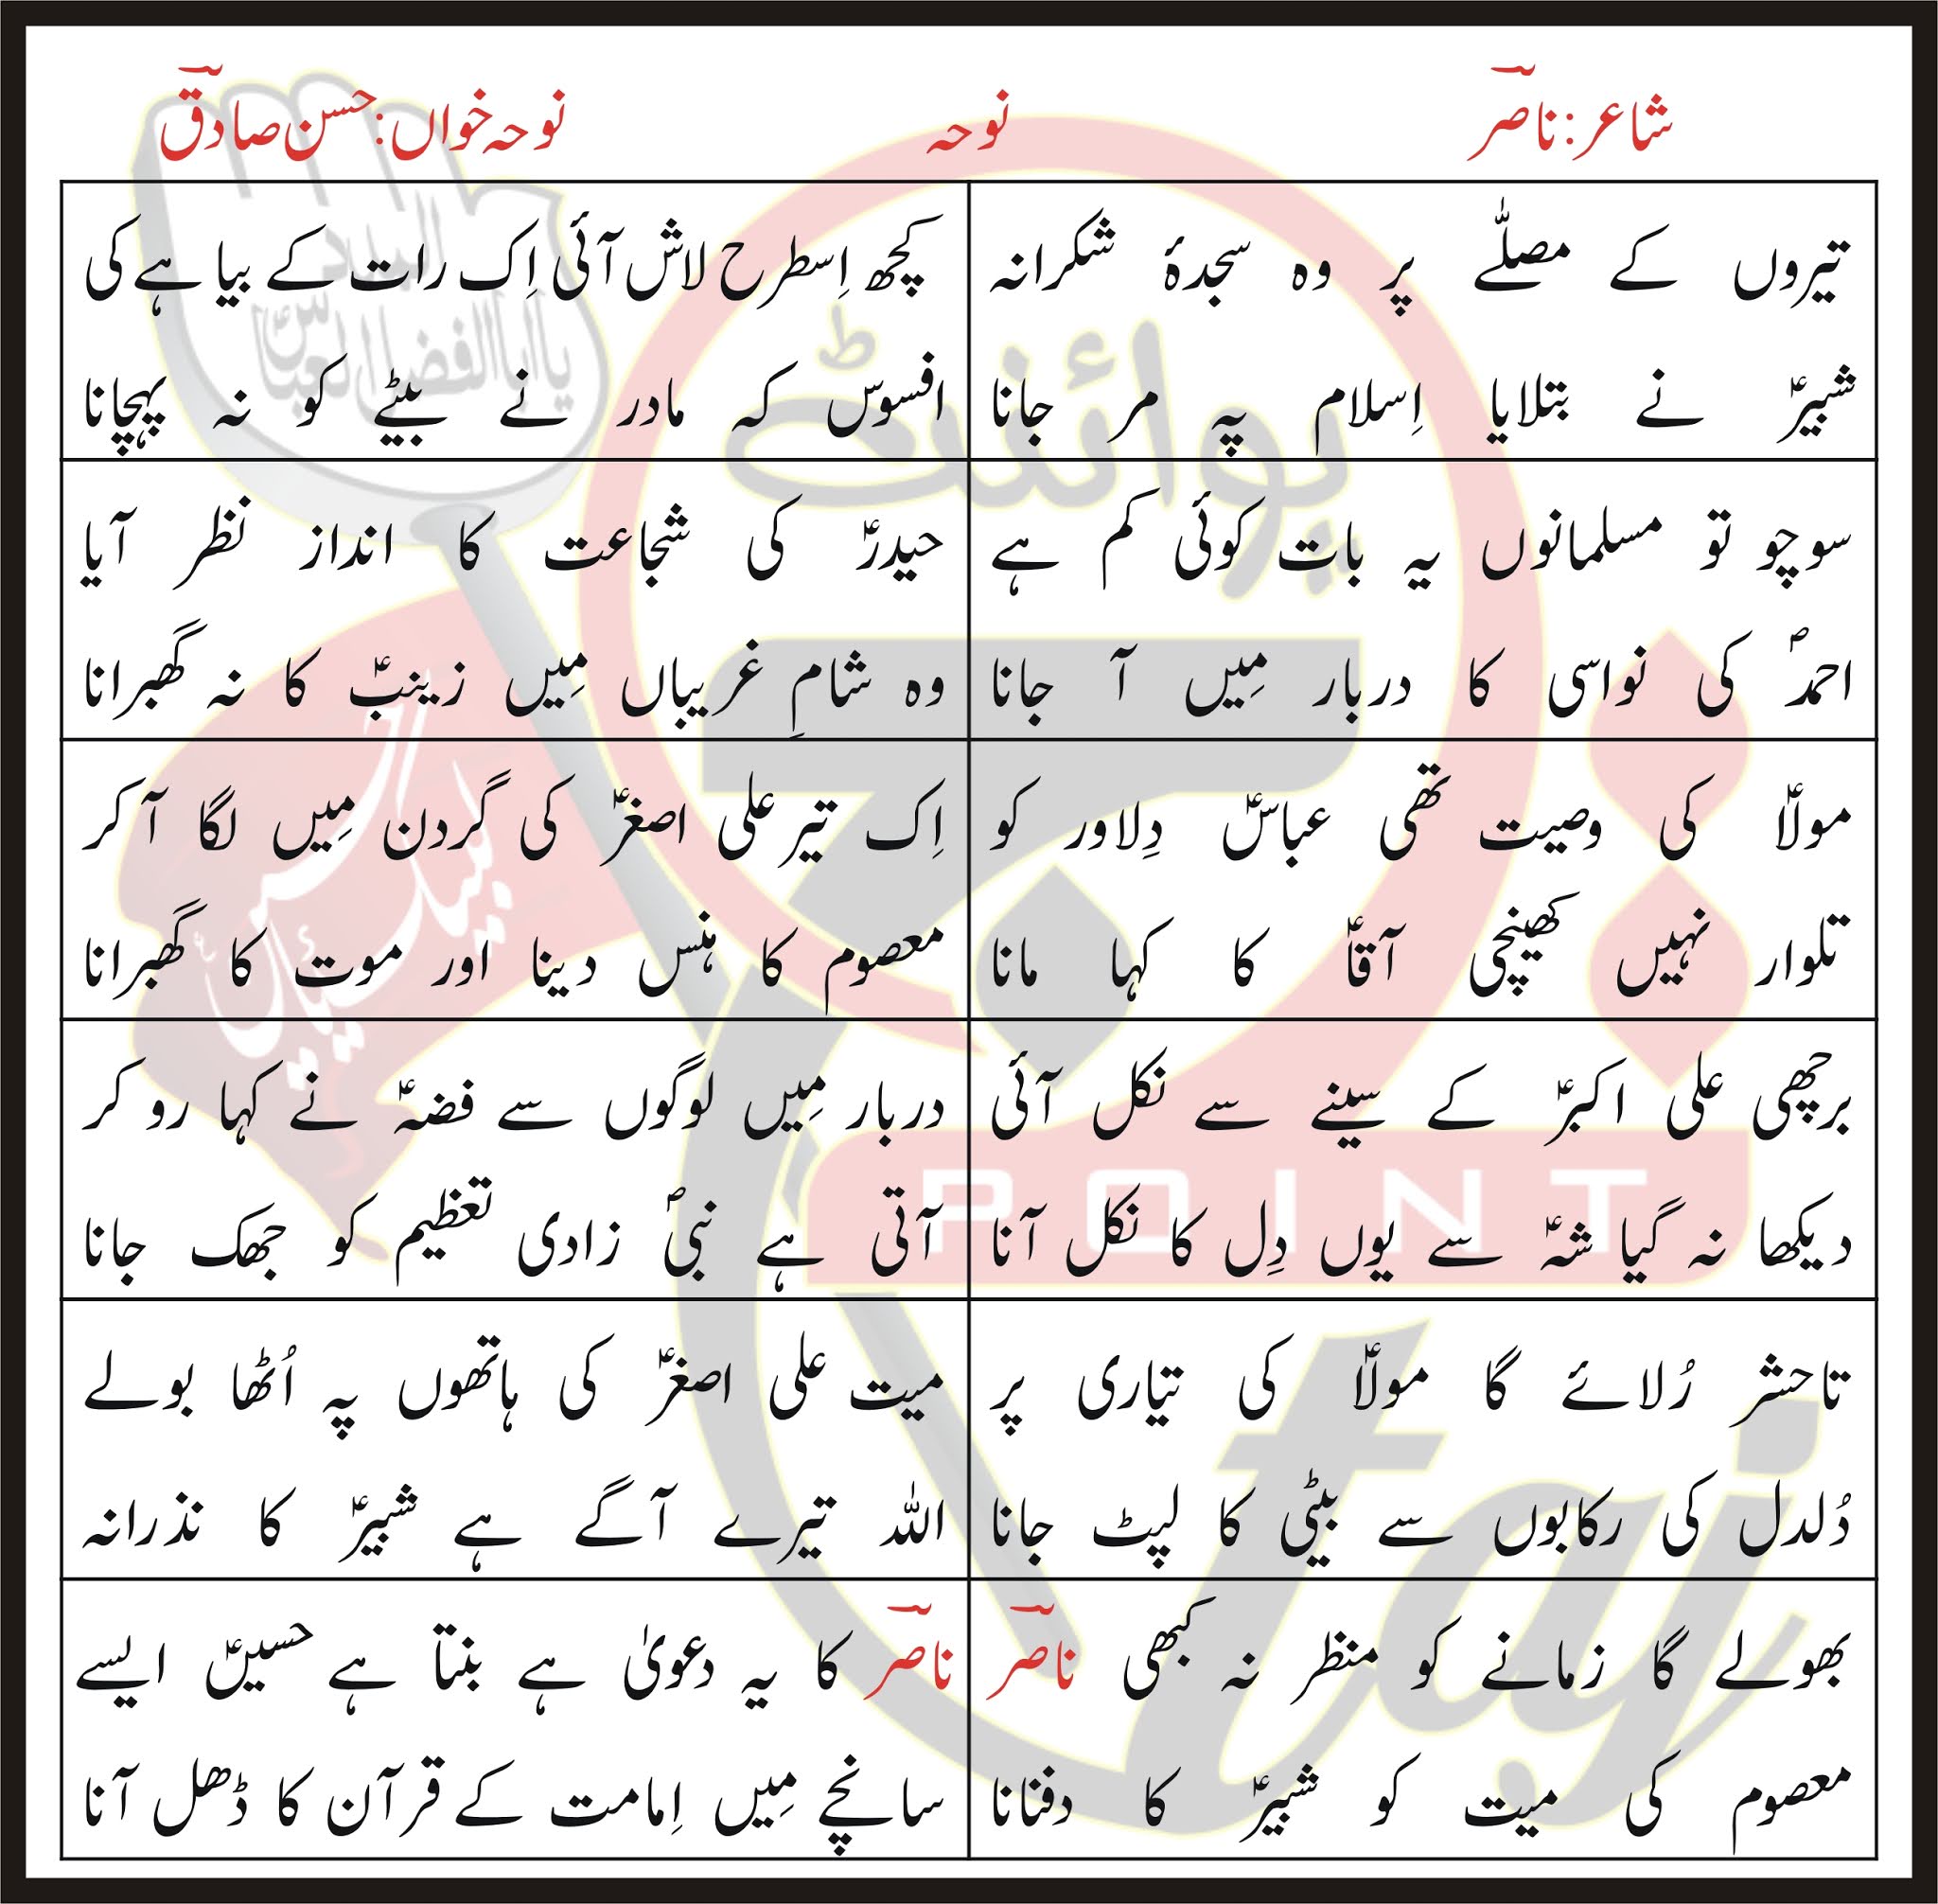 شاعر: ناصرؔ
نوحہ
نوحہ خواں: حسن صادقؔ
تیروں کے مصلّے پر وہ سجدۂ شکرانہ
شبیرؑ نے بتلایا اِسلام پہ مر جانا
کچھ اِسطرح لاش آئی اِک رات کے بیاہے کی
افسوس کہ مادر نے بیٹے کو نہ پہچانا
سوچو تو مسلمانوں یہ بات کوئی کم ہے
احمدؐ کی نواسی کا دربار مِیں آ جانا
حیدرؑ کی شجاعت کا انداز نظر آیا
وہ شامِ غریباں مِیں زینبؑ کا نہ گھبرانا
مولاؑ کی وصیت تھی عباسؑ دِلاور کو
تلوار نہیں کھینچی آقاؑ کا کہا مانا
اِک تیر علی اصغرؑ کی گردن مِیں لگا آ کر
معصوم کا ہنس دینا اور موت کا گھبرانا
برچھی علی اکبرؑ کے سینے سے نکل آئی
دیکھا نہ گیا شہؑ سے یوں دِل کا نکل آنا
دربار مِیں لوگوں سے فضہؑ نے کہا رو کر
آتی ہے نبیؐ زادی تعظیم کو جھک جانا
تاحشر رُلائے گا مولاؑ کی تیّاری پر
دُلدل کی رکابوں سے بیٹی کا لپٹ جانا
میت علی اصغرؑ کی ہاتھوں پہ اُٹھا بولے
اللہ تیرے آگے ہے شبیرؑ کا نذرانہ
بھولے گا زمانے کو منظر نہ کبھی ناصرؔ
معصوم کی میت کو شبیرؑ کا دفنانا
ناصرؔ کا یہ دعویٰ ہے بنتا ہے حسینؑ ایسے
سانچے مِیں اِمامت کے قرآن کا ڈھل آنا
پوائنٹ
POINT
taj
یا اباالفضل العباسؑ
لبیک یا حسینؑ